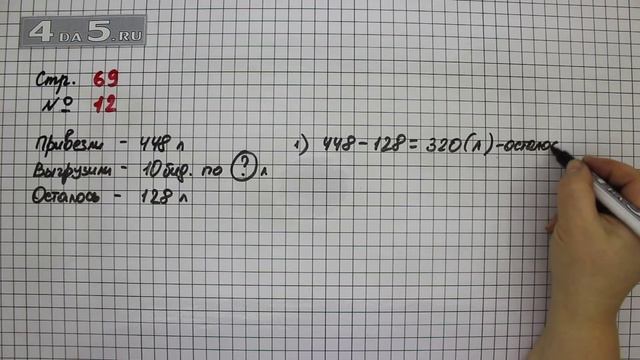 4 DA 5.RU
Стр. 69
№ 12
Привезли - 448 л
Выгрузили - 10 бид. по ? л
Осталось - 128 л
1) 448 - 128 = 320 (л) - осталос